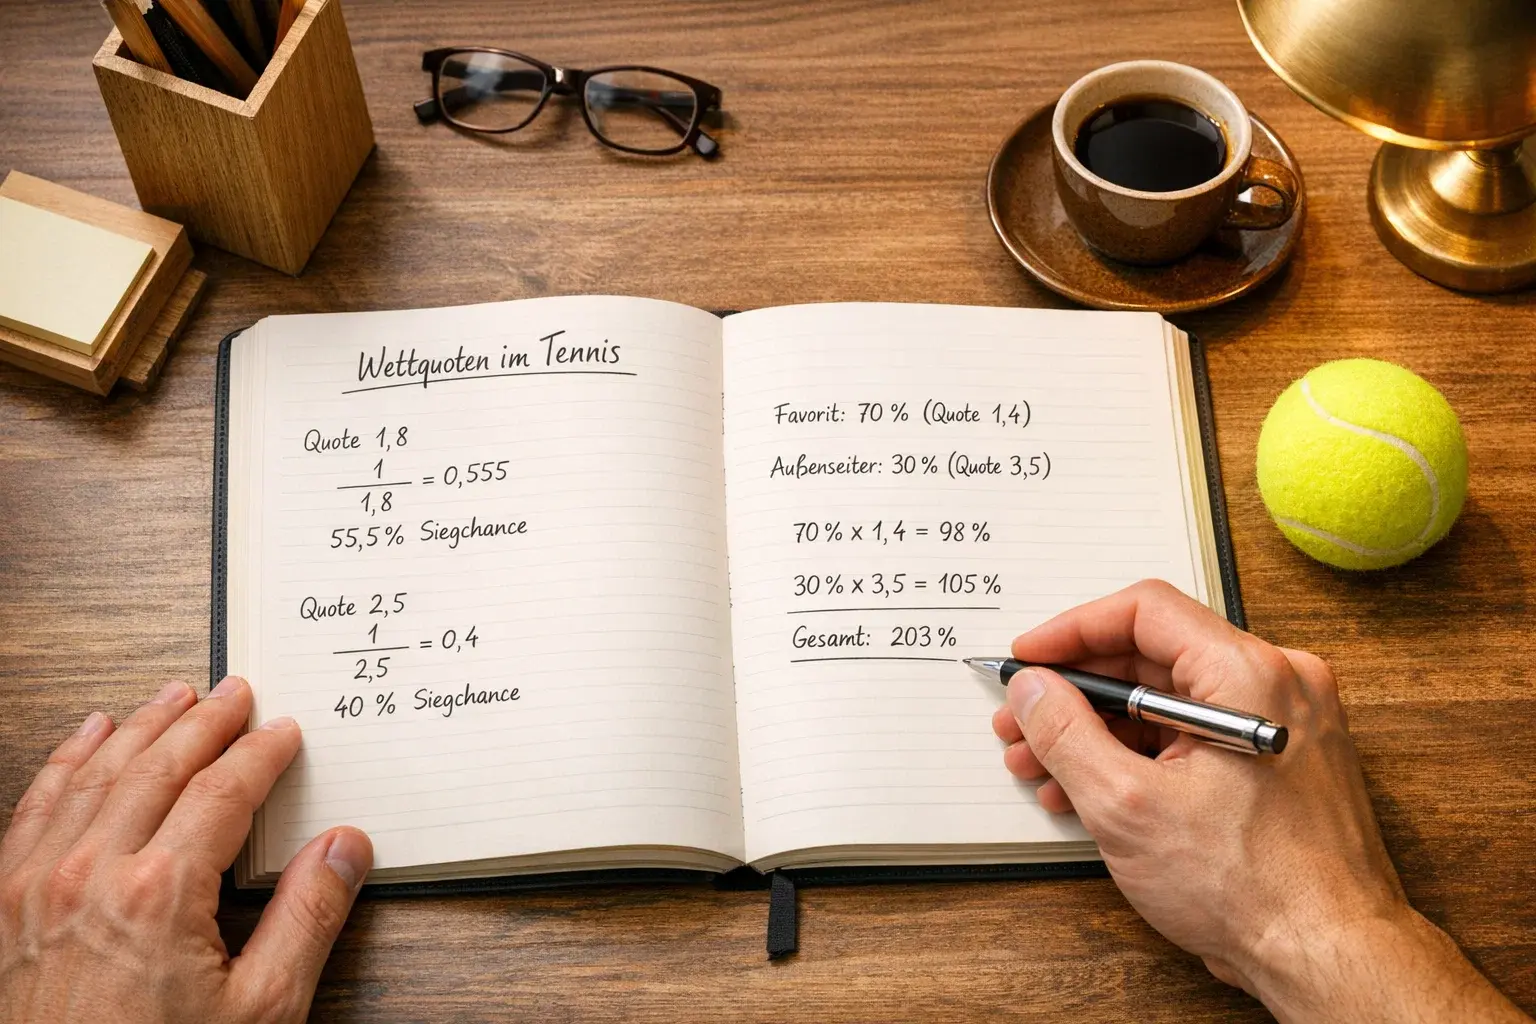 Wettquoten im Tennis
Quote 1,8
1
1,8
= 0,555
55,5 % Siegchance
Quote 2,5
1
2,5
= 0,4
40 % Siegchance
Favorit: 70 % (Quote 1,4)
Außenseiter: 30 % (Quote 3,5)
70 % x 1,4 = 98 %
30 % x 3,5 = 105 %
Gesamt: 203 %